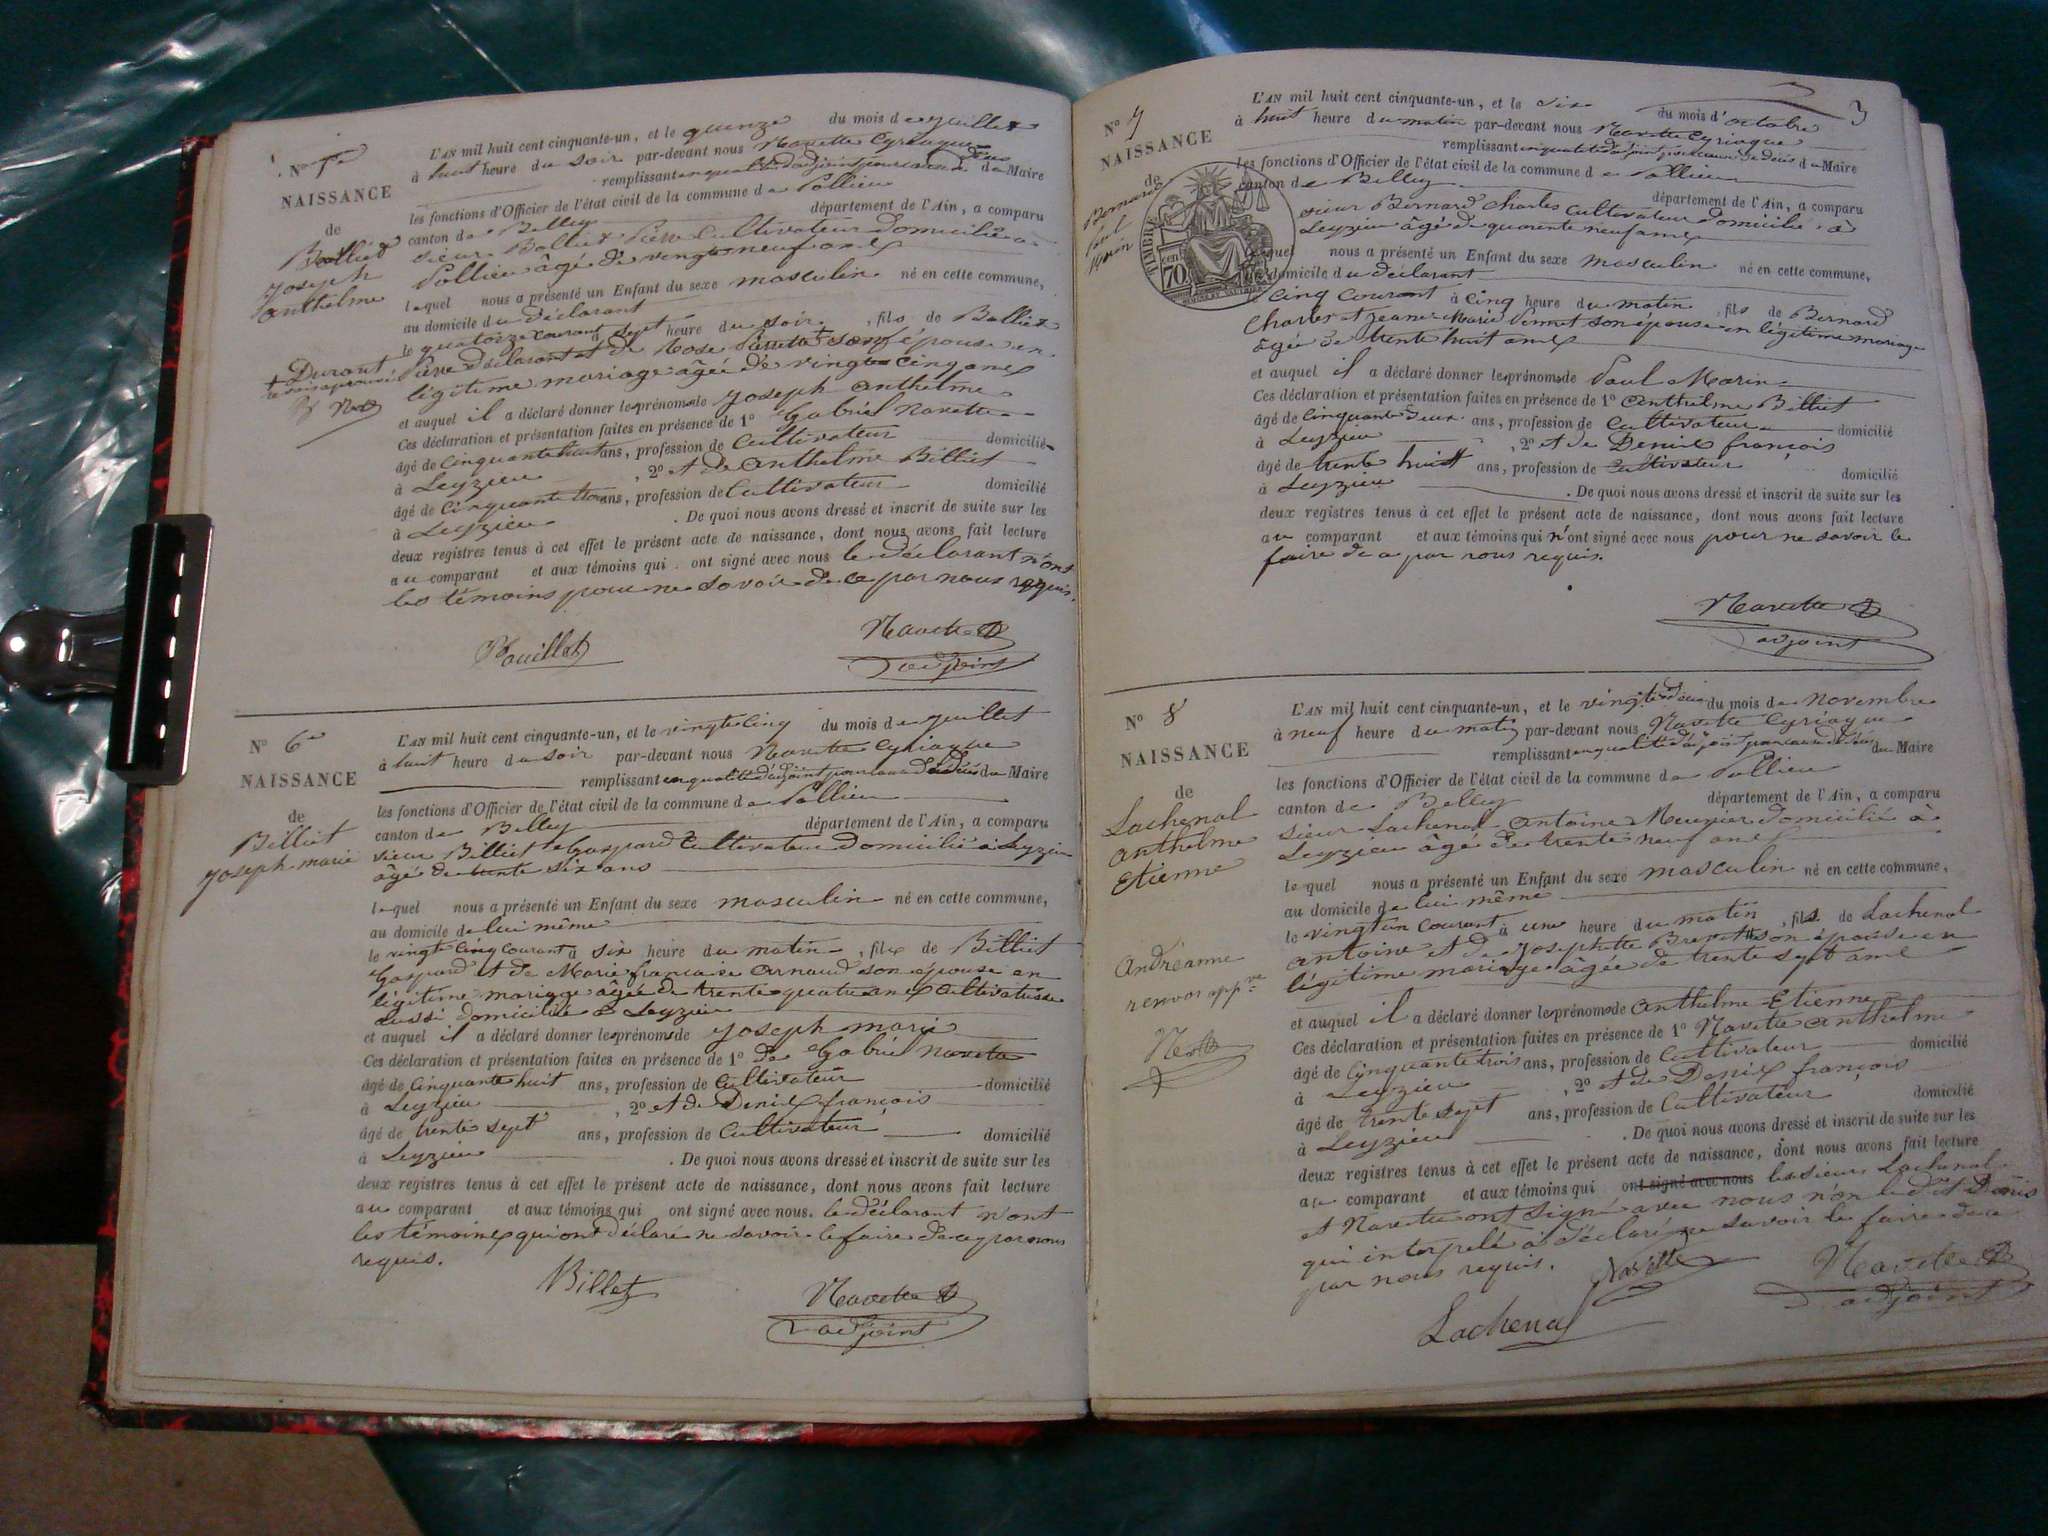 NAISSANCE
de
Joseph
anthelme
L'AN mil huit cent cinquante-un, et le quinze du mois de juillet
à huit heure du soir par-devant nous Navette Cyriaque
remplissant en qualité d'adjoint du Maire
les fonctions d'Officier de l'état civil de la commune de Pollieu
canton de Belley département de l'Ain, a comparu
sieur Balliet cultivateur domicilié a
Pollieu âgé de vingt neuf ans
lequel nous a présenté un Enfant du sexe masculin né en cette commune,
au domicile du déclarant
le quatorze courant sept heure du soir, fils de Balliet
déclarant et de Rose son épouse en
Durant
légitime mariage âgée de vingt cinq ans
et auquel il a déclaré donner les prénoms de Joseph anthelme
Ces déclaration et présentation faites en présence de 1° Gabriel Navette
âgé de cinquante huit ans, profession de cultivateur domicilié
à Leyzieu, 2° et de anthelme Billiet
âgé de cinquante ans, profession de cultivateur domicilié
à Leyzieu. De quoi nous avons dressé et inscrit de suite sur les
deux registres tenus à cet effet le présent acte de naissance, dont nous avons fait lecture
au comparant et aux témoins qui ont signé avec nous le déclarant n'ont
les témoins pour ne savoir de ce par nous requis.
Navette
adjoint
N° 6e
NAISSANCE
de
Billiet
Joseph marie
L'AN mil huit cent cinquante-un, et le vingt cinq du mois de juillet
à huit heure du soir par-devant nous Navette Cyriaque
remplissant en qualité d'adjoint du Maire
les fonctions d'Officier de l'état civil de la commune de Pollieu
canton de Belley département de l'Ain, a comparu
sieur Billiet Gaspard Cultivateur domicilié à Leyzieu
âgé de trente six ans
lequel nous a présenté un Enfant du sexe masculin né en cette commune,
au domicile de lui même
le vingt cinq courant à six heure du matin, fils de Billiet
Gaspard et de Marie francaise Arnaud son épouse en
légitime mariage âgée de trente quatre ans cultivatrice
aussi domicilié à Leyzieu
et auquel il a déclaré donner les prénoms de Joseph marie
Ces déclaration et présentation faites en présence de 1° de Gabriel Navette
âgé de cinquante huit ans, profession de Cultivateur domicilié
à Leyzieu, 2° et de Denis françois
âgé de trente sept ans, profession de Cultivateur domicilié
à Leyzieu. De quoi nous avons dressé et inscrit de suite sur les
deux registres tenus à cet effet le présent acte de naissance, dont nous avons fait lecture
au comparant et aux témoins qui ont signé avec nous. le déclarant n'ont
les témoins qui ont déclaré ne savoir le faire de ce par nous
requis.
Billet
Navette
adjoint
3
N° 7
NAISSANCE
de
Bernard
Paul
Marin
TIMBRE
70
L'AN mil huit cent cinquante-un, et le six du mois d'octobre
à huit heure du matin par-devant nous Navette Cyriaque
remplissant en qualité d'adjoint du Maire
les fonctions d'Officier de l'état civil de la commune de Pollieu
canton de Belley département de l'Ain, a comparu
sieur Bernard Charles cultivateur domicilié à
Leyzieu âgé de quarente neuf ans
lequel nous a présenté un Enfant du sexe masculin né en cette commune,
au domicile du déclarant
cinq courant à cinq heure du matin, fils de Bernard
Charles et Jeanne Marie son épouse en légitime mariage
âgée de trente huit ans
et auquel il a déclaré donner les prénoms de Paul Marin
Ces déclaration et présentation faites en présence de 1° Anthelme Billiet
âgé de cinquante deux ans, profession de Cultivateur domicilié
à Leyzieu, 2° et de Denis françois
âgé de trente huit ans, profession de cultivateur domicilié
à Leyzieu. De quoi nous avons dressé et inscrit de suite sur les
deux registres tenus à cet effet le présent acte de naissance, dont nous avons fait lecture
au comparant et aux témoins qui n'ont signé avec nous pour ne savoir le
faire de ce par nous requis.
Navette
adjoint
N° 8
NAISSANCE
de
Lachenal
anthelme
Etienne
L'AN mil huit cent cinquante-un, et le vingt deux du mois de novembre
à neuf heure du matin par-devant nous Navette Cyriaque
remplissant en qualité d'adjoint du Maire
les fonctions d'Officier de l'état civil de la commune de Pollieu
canton de Belley département de l'Ain, a comparu
sieur Lachenal Antoine Meunier domicilié à
Leyzieu âgé de trente neuf ans
lequel nous a présenté un Enfant du sexe masculin né en cette commune,
au domicile de lui même
le vingt un courant à une heure du matin, fils de Lachenal
antoine et de Josephte son épouse en
légitime mariage âgée de trente sept ans
Andréanne
renvoi
et auquel il a déclaré donner les prénoms de anthelme Etienne
Ces déclaration et présentation faites en présence de 1° Navette anthelme
âgé de cinquante trois ans, profession de cultivateur domicilié
à Leyzieu, 2° et de Denis françois
âgé de trente sept ans, profession de cultivateur domicilié
à Leyzieu. De quoi nous avons dressé et inscrit de suite sur les
deux registres tenus à cet effet le présent acte de naissance, dont nous avons fait lecture
au comparant et aux témoins qui ont signé avec nous les sieurs Lachenal
et Navette ont signé avec nous non le dit Denis
qui interpelé a déclaré ne savoir le faire de ce
par nous requis.
Navette
Lachenal
Navette
adjoint